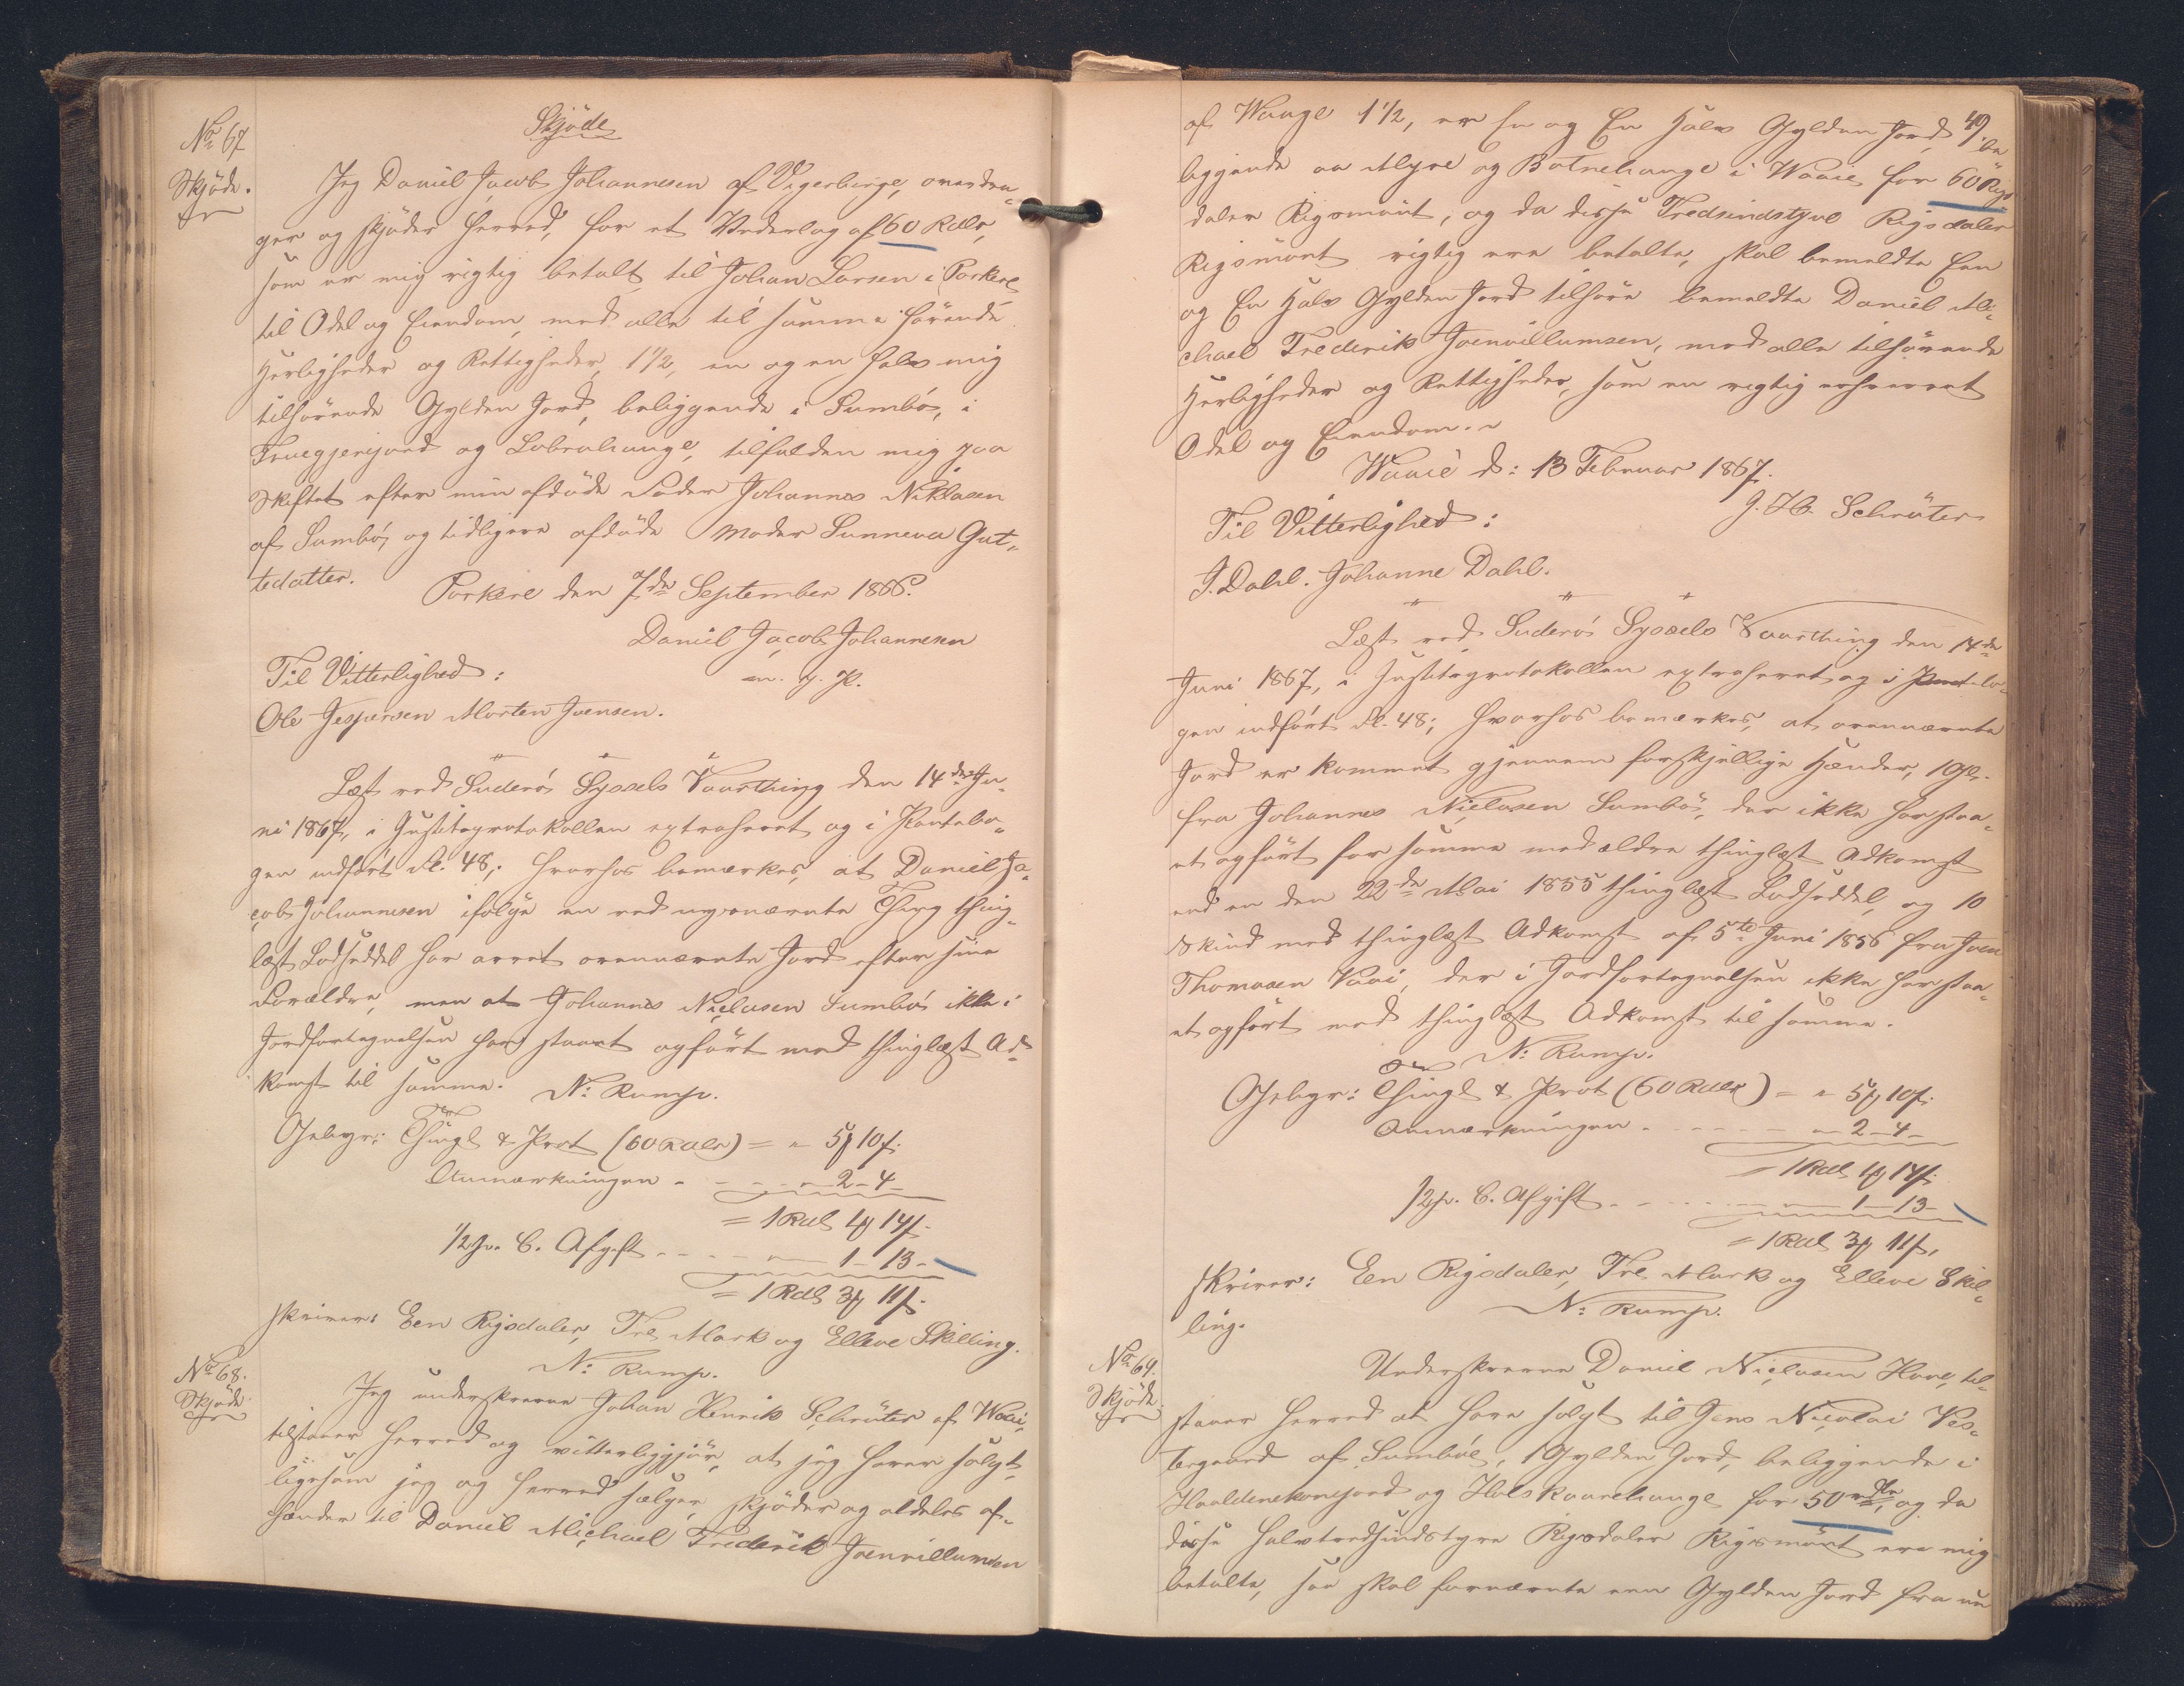 No 67
Skjöde.
Skjöde
Jeg Daniel Jacob Johannesen af Vigerbirge, overdra-
ger og skjöder herved, for et Vederlag af 60 Rdlr,
som er mig rigtig betalt, til Johan Larsen i Porkere
til Odel og Eiendom, med alle til samme hörende
Herligheder og Rettigheder, 1½, en og en halv mig
tilhörende Gylden Jord, beliggende i Sumbö, i
og Lobrahauge, tilfalden mig paa
Skiftet efter min afdöde Fader Johannes Niklasen
af Sumbö, og tidligere afdöde Moder Sunneva Gut-
tedatter.
Porkere den 7de September 1866.
Daniel Jacob Johannesen
m. f. P.
Til Vitterlighed:
Ole Jespersen Morten Joensen.
Læst ved Suderö Syssels Vaarthing den 14de Ju-
ni 1867, i Justitsprotokollen extraheret og i Pantebo-
gen indfört Fl. 48; hvorhos bemærkes, at Daniel Ja-
cob Johannesen ifölge en ved nysnævnte Thing thing-
læst Lodseddel har arvet ovennævnte Jord efter sine
Forældre, men at Johannes Nielasen Sumbö ikke i
Jordfortegnelsen har staaet opfört med thinglæst Ad-
komst til samme. N: Rump.
Gebyr: Thingl & Prot (60 Rdlr) = " 5 # 10 s.
Anmærkningen - - - - 2 - 4 -
= 1 Rdl 1 # 14 s.
½ p. C. Afgift - - - - 1 - 13 -
= 1 Rdl 3 # 11 s.
skriver: Een Rigsdaler, Tre Mark og Elleve Skilling.
N: Rump.
No 68.
Skjöde.
Jeg underskrevne Johan Henrik Schröter af Waai,
tilstaaer herved og vitterliggjör, at jeg haver solgt,
ligesom jeg og herved sælger, skjöder og aldeles af-
hænder til Daniel Michael Frederik Joenvillumsen
49.
af Waage 1½, er Een og En Halv Gylden Jord, be-
liggende aa Myre og Botnehauge i Waaie, for 60 Rigs
daler Rigsmönt, og da disse Tredsindstyve Rigsdaler
Rigsmönt rigtig ere betalte, skal bemeldte Een
og En Halv Gylden Jord tilhöre bemeldte Daniel Mi-
chael Frederik Joenvillumsen, med alle tilhörende
Herligheder og Rettigheder, som en rigtig erhvervet
Odel og Eiendom.
Waaie d: 13 Februar 1867.
J. H. Schröter
Til Vitterlighed:
J. Dahl. Johanne Dahl.
Læst ved Suderö Syssels Vaarthing den 14de
Juni 1867, i Justitsprotokollen extraheret og i Pantebo-
gen indfört Fl. 48; hvorhos bemærkes, at ovennævnte
Jord er kommet gjennem forskjellige Hænder, 1 Gl.
fra Johannes Nielasen Sumbö, der ikke har staa-
et opfört for samme med ældre thinglæst Adkomst
end en den 22de Mai 1855 thinglæst Lodseddel, og 10
Skind med thinglæst Adkomst af 5te Juni 1856 fra Joen
Thomasen Vaai, der i Jordfortegnelsen ikke har staa-
et opfört med thinglæst Adkomst til samme.
N: Rump.
Gebyr: Thingl & Prot (60 Rdlr) = " 5 # 10 s.
Anmærkningen - - - - - 2 - 4 -
= 1 Rdl 1 # 14 s.
½ p. C. Afgift - - - - 1 - 13 -
= 1 Rdl 3 # 11 s.
skriver: Een Rigsdaler, Tre Mark og Elleve Skil-
ling.
N: Rump.
No 69.
Skjöde.
Underskrevne Daniel Nielasen Hove, til-
staaer herved at have solgt til Jens Nicolai Ves-
tergaard af Sumböe, 1 Gylden Jord, beliggende i
og Halskaarehauge for 50 rdlr, og da
disse halvtredsindstyve Rigsdaler Rigsmönt ere mig
betalte, saa skal fornævnte een Gylden Jord fra nu